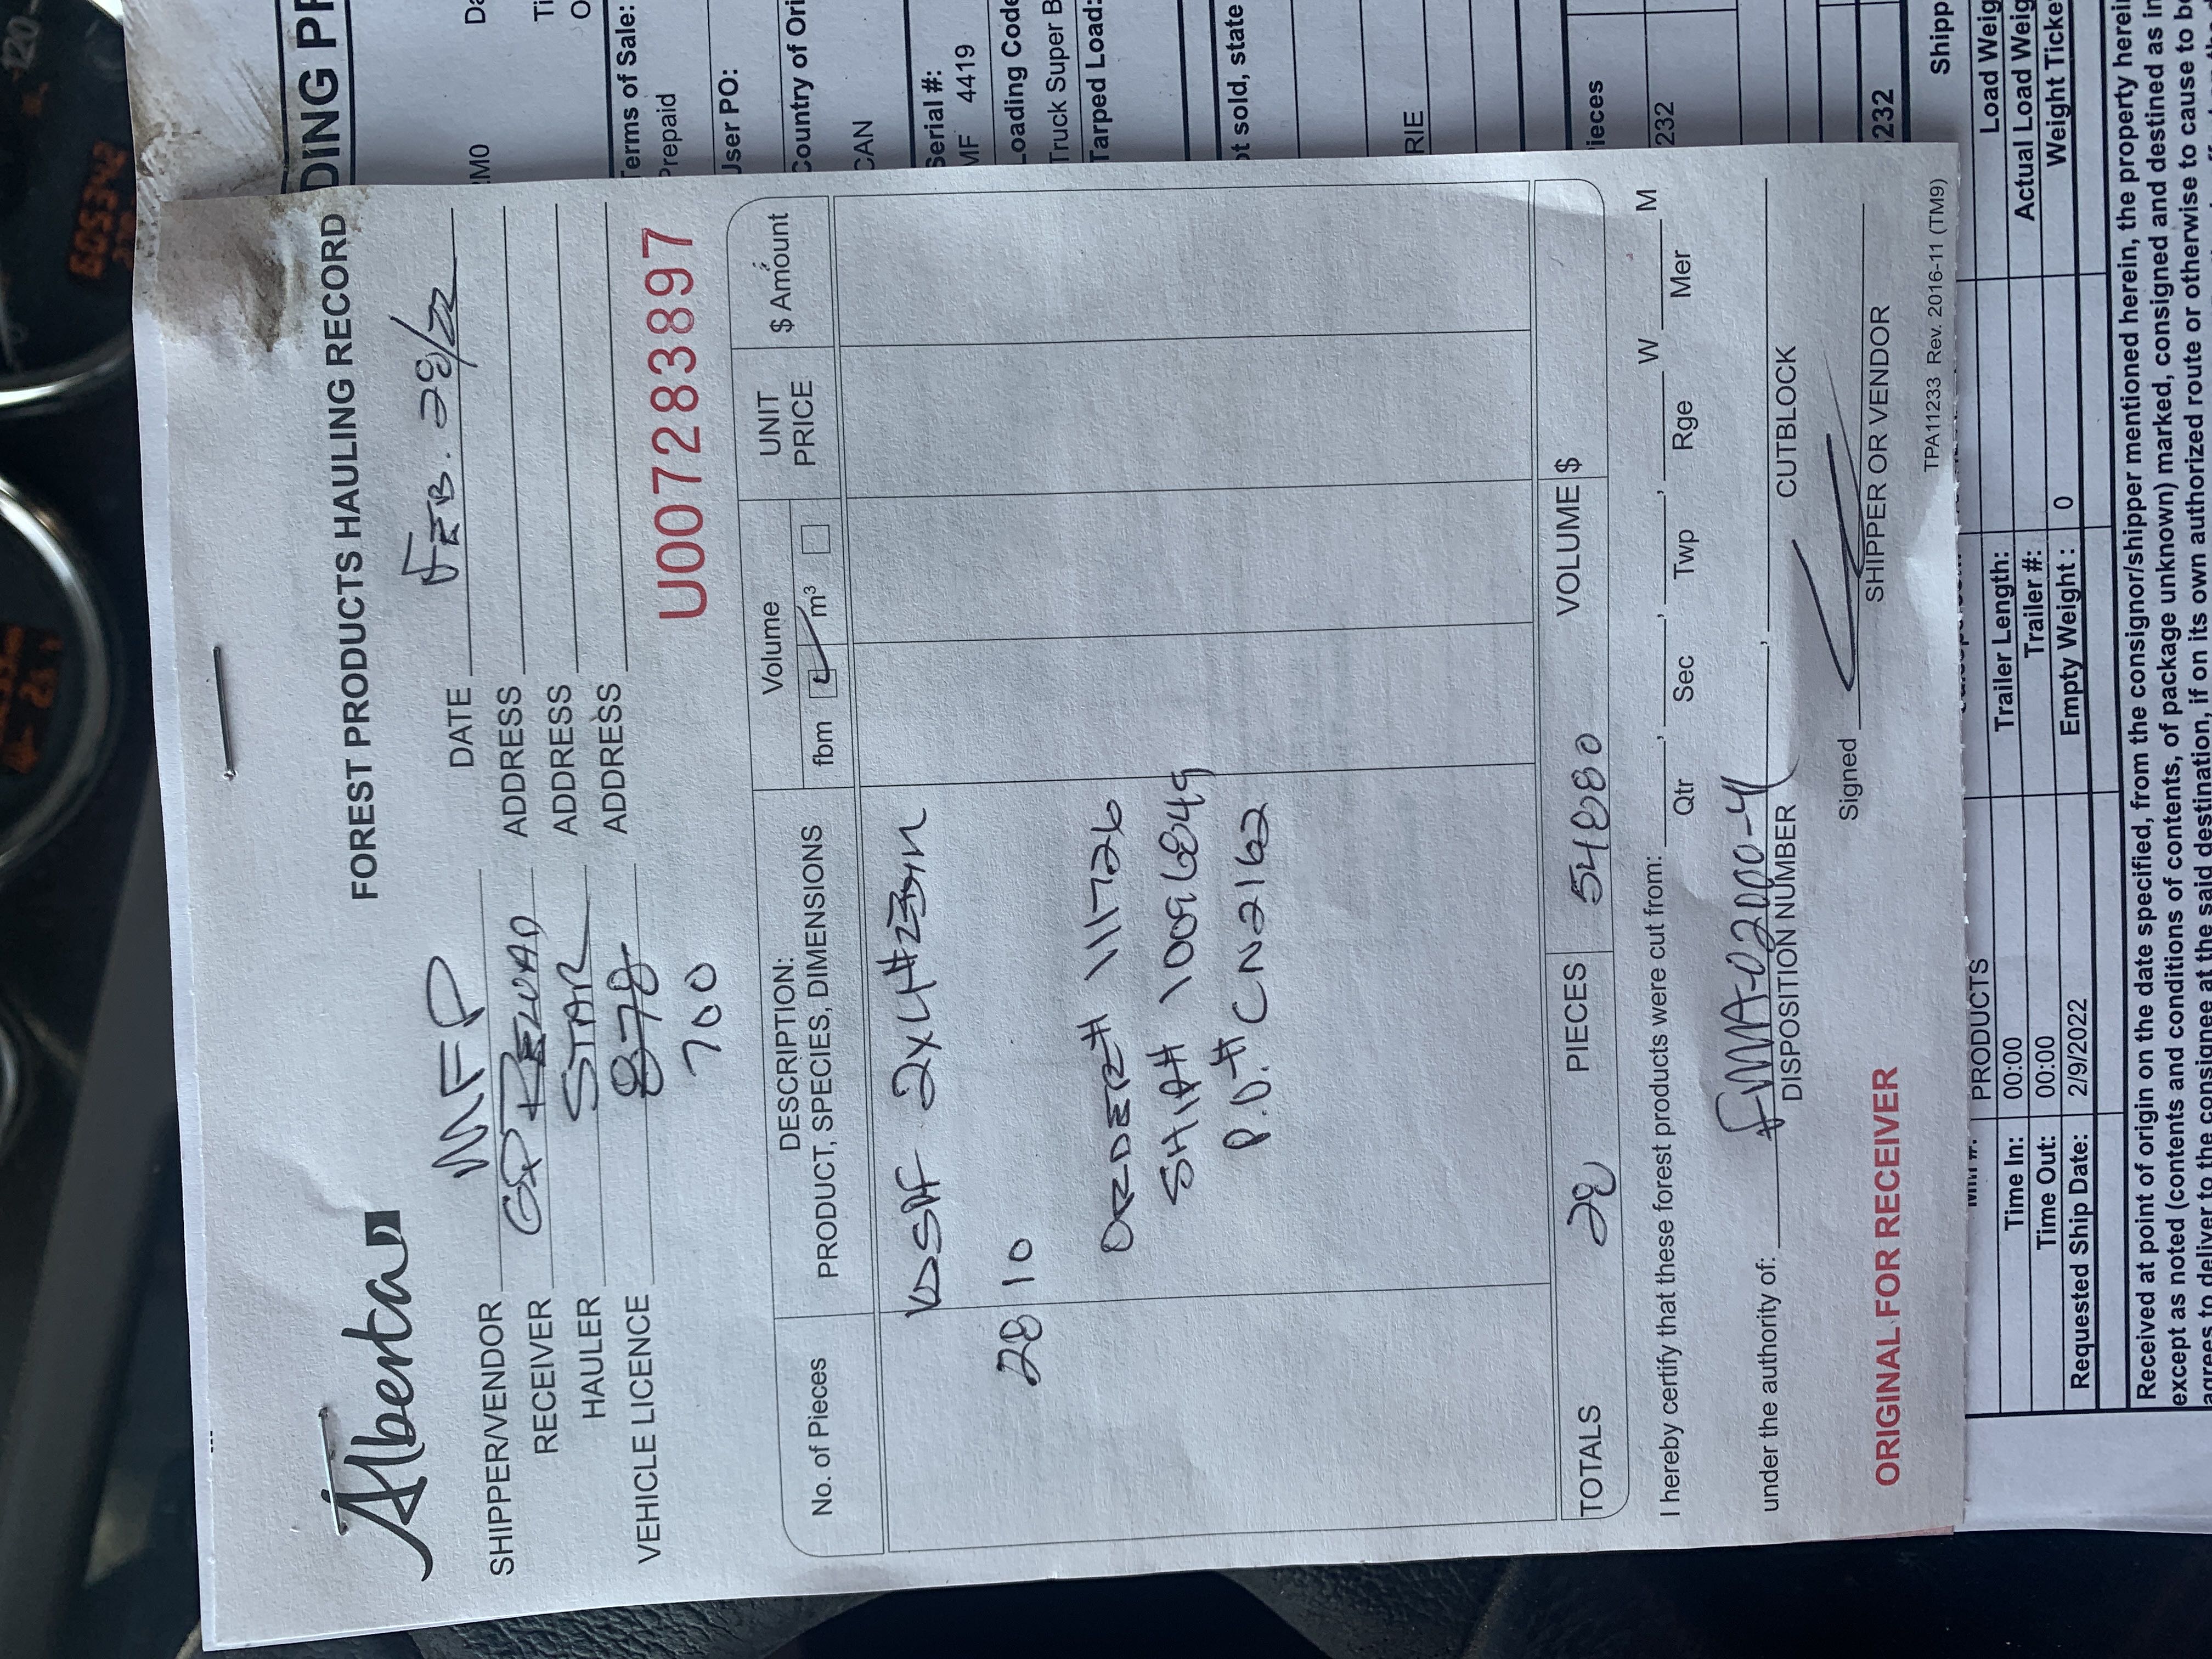 605342
120
Alberta
FOREST PRODUCTS HAULING RECORD
SHIPPER/VENDOR MFP DATE FEB. 28/22
RECEIVER GP RELOAD ADDRESS
HAULER STAR ADDRESS
VEHICLE LICENCE 878 ADDRESS
700
U007283897
No. of Pieces
DESCRIPTION:
PRODUCT, SPECIES, DIMENSIONS
Volume
fbm m³
UNIT
PRICE
$ Amount
KDSPF 2x4
28 10
ORDER# 111726
SHIP# 10096849
P.O.# CN2162
TOTALS 28 PIECES 54880 VOLUME $
I hereby certify that these forest products were cut from: , , , W M
Qtr Sec Twp Rge Mer
under the authority of: FMA-02000-4 ,
DISPOSITION NUMBER CUTBLOCK
Signed
SHIPPER OR VENDOR
ORIGINAL FOR RECEIVER
TPA11233 Rev. 2016-11 (TM9)
DING
M0
Terms of Sale:
Prepaid
User PO:
Country of Ori
CAN
Serial #:
MF 4419
Loading Code
Truck Super B
Tarped Load:
ot sold, state
RIE
ieces
232
232
Shipp
PRODUCTS
Time In: 00:00 Trailer Length: Load Weig
Time Out: 00:00 Trailer #: Actual Load Weig
Requested Ship Date: 2/9/2022 Empty Weight : 0 Weight Ticke
Received at point of origin on the date specified, from the consignor/shipper mentioned herein, the property herei
except as noted (contents and conditions of contents, of package unknown) marked, consigned and destined as in
agrees to deliver to the consignee at the said destination, if on its own authorized route or otherwise to cause to be